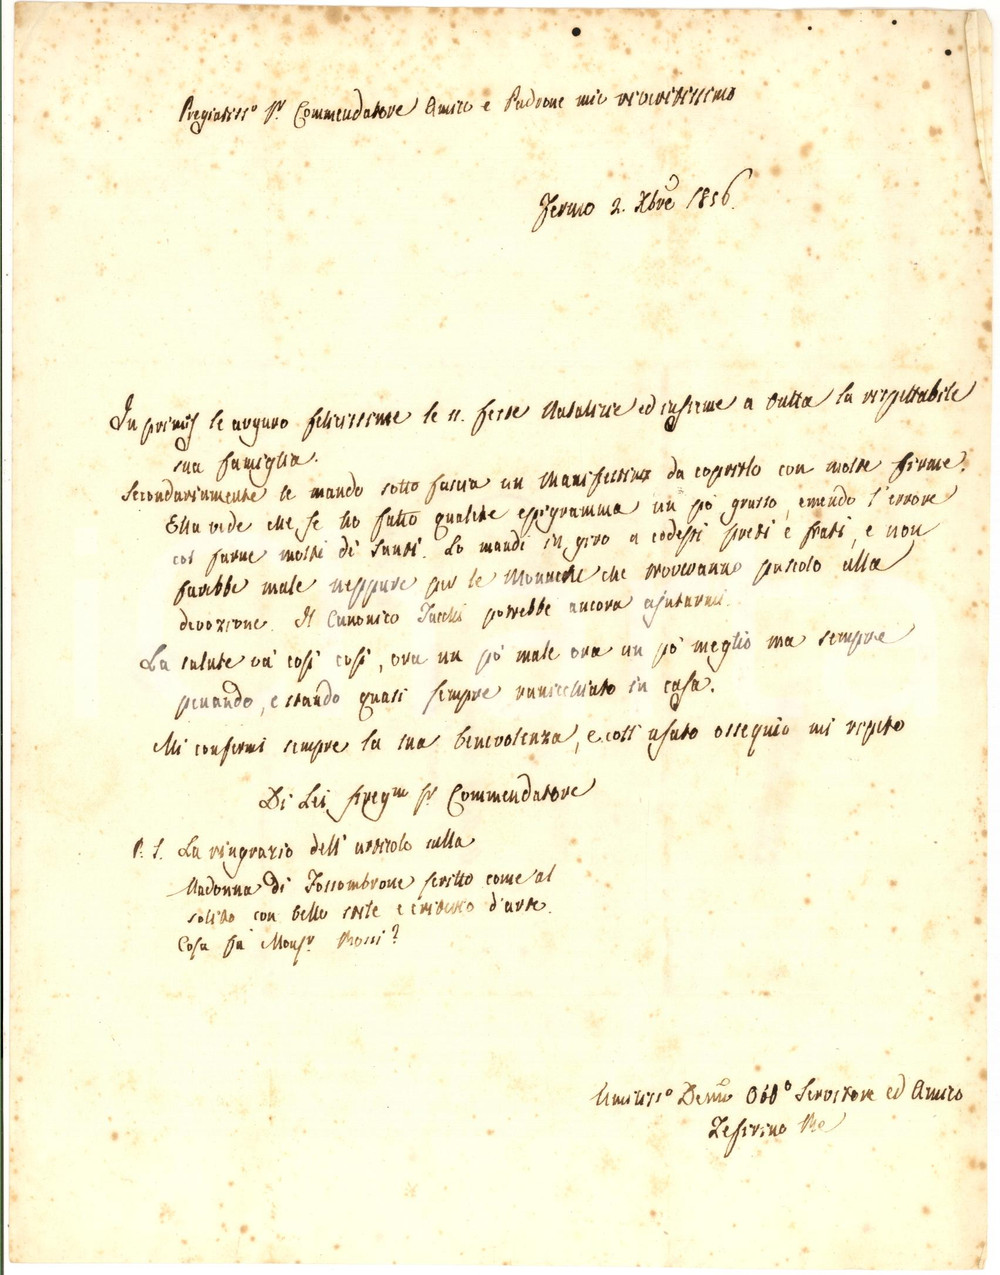 Pregiatiss.o Sr. Commendatore Amico e Padrone mio riveritissimo
Fermo 2. Xbre 1856.
In primis le auguro felicissime le ss. feste Natalizie ed insieme a tutta la rispettabile
sua famiglia.
Secondariamente le mando sotto fascia un Manifestino da coprirlo con molte firme.
Ella vede che se ho fatto qualche epigramma un pò grasso, emendo l'errore
col farne molti di Santi. Lo mandi in giro a codesti preti e frati, e non
farebbe male neppure per le Monache che troveranno pascolo alla
devozione. Il Canonico Tacchi potrebbe ancora ajutarmi.
La salute và così così, ora un pò male ora un pò meglio ma sempre
penando, e stando quasi sempre rannicchiato in casa.
Mi confermi sempre la sua benevolenza, e coll'usato ossequio mi ripeto
Di Lei pregma Sr. Commendatore
P. S. La ringrazio dell'articolo sulla
Madonna di Fossombrone scritto come al
solito con bello stile e criterio d'arte.
Cosa fa Monsr. Rossi?
Umiliss.o Devmo Obb.o Servitore ed Amico
Zefirino Re